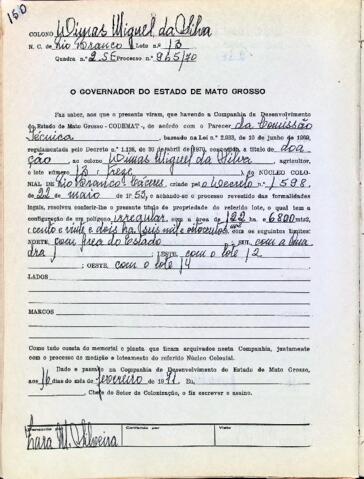 150
COLONO Dimas Miguel da Silva
N. C. de Rio Branco Lote n.º 13
Quadra n.º 2 SE Processo n.º 965/70
O GOVERNADOR DO ESTADO DE MATO GROSSO
Faz saber, aos que o presente virem, que havendo a Companhia de Desenvolvimento
do Estado de Mato Grosso - CODEMAT -, de acordo com o Parecer da Comissão
Técnica, baseado na Lei n.º 2.933, de 10 de junho de 1969,
regulamentada pelo Decreto n.º 1.138, de 30 de abril de 1970, concedido, a título de doa
ção, ao colono Dimas Miguel da Silva, agricultor,
o lote número 13 treze no NÚCLEO COLO-
NIAL DE Rio Branco Cáceres, criado pelo Decreto n.º 1598,
de 22 de maio de 1953, e achando-se o processo revestido das formalidades
legais, resolveu conferir-lhe o presente título de propriedade do referido lote, o qual tem a
configuração de um polígono irregular com a área de 122 ha 6800 mts2
(cento e vinte e dois ha seis mil e oitocentos mts2), com os seguintes limites:
NORTE, com área do Estado; SUL, com a
dra; ESTE, com o lote 12
; OESTE, com o lote 14
LADOS
MARCOS
Como tudo consta do memorial e planta que ficam arquivados nesta Companhia, juntamente
com o processo de medição e loteamento do referido Núcleo Colonial.
Dado e passado na Companhia de Desenvolvimento do Estado de Mato Grosso,
aos 16 dias do mês de fevereiro de 1971. Eu,
, Chefe do Setor de Colonização, o fiz escrever e assino.
Transcrito por
Conferido por
Visto
Zara M. Silveira